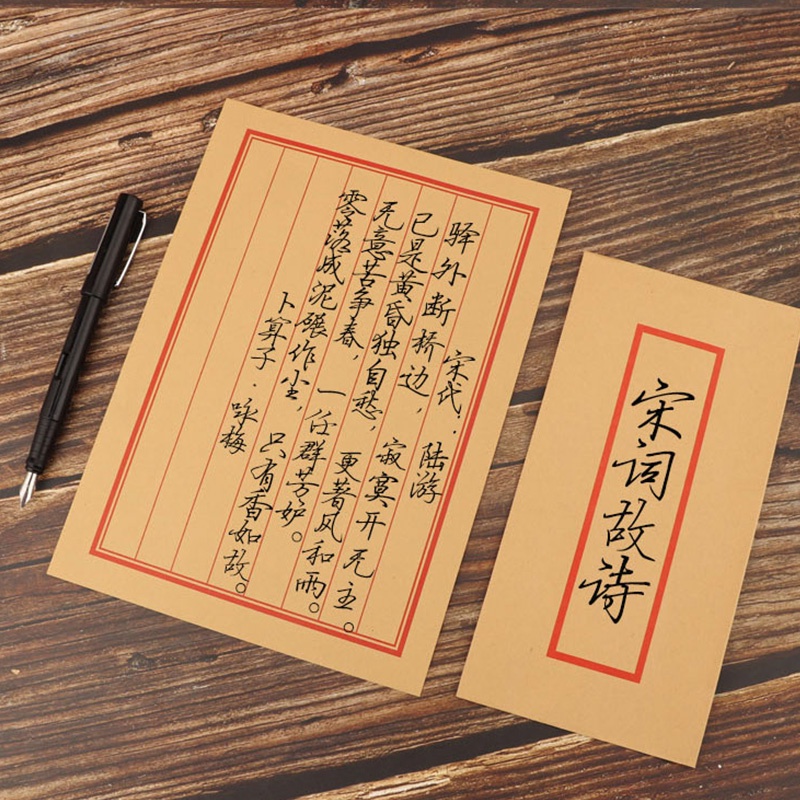 宋代·陆游
驿外断桥边，寂寞开无主。
已是黄昏独自愁，更著风和雨。
无意苦争春，一任群芳妒。
零落成泥碾作尘，只有香如故。
卜算子·咏梅
宋词故诗